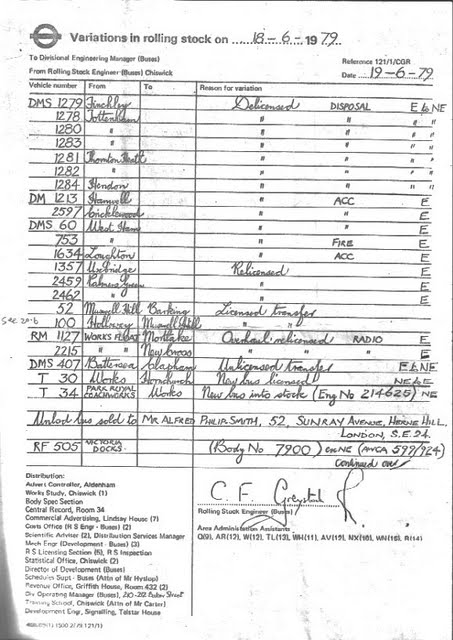 Variations in rolling stock on 18-6-1979
To Divisional Engineering Manager (Buses)
Reference 121/1/CGR
From Rolling Stock Engineer (Buses) Chiswick
Date 19-6-79
Vehicle number From To Reason for variation
DMS 1279 Finchley Delicensed DISPOSAL E & NE
1278 Tottenham " " " "
1280 " " " " "
1283 " " " " "
1281 Thornton Heath " " " "
1282 " " " " "
1284 Hendon " " " "
DM 1213 Hanwell " ACC E
2597 Cricklewood " E
DMS 60 West Ham " E
753 " " FIRE E
1634 Loughton " ACC E
1357 Uxbridge Relicensed E
2459 Palmers Green " E
2462 " " E
52 Muswell Hill Barking Licensed transfer
See 20-6 100 Holloway Muswell Hill " "
RM 1127 WORKS Mortlake Overhaul relicensed RADIO E
2215 " New Cross " " E
DMS 407 Battersea Clapham Unlicensed transfer E & NE
T 30 Works Hornchurch New bus licensed NE & E
T 34 PARK ROYAL COACHWORKS Works New bus into stock (Eng No 214625) NE
Unlicd bus sold to MR ALFRED PHILIP SMITH, 52, SUNRAY AVENUE, HERNE HILL.
LONDON, S.E.24.
RF 505 VICTORIA DOCKS. (Body No 7900) E & NE
continued over
C. F. Greystal
Rolling Stock Engineer (Buses)
Area Administration Assistants
Q(9), AR(12), W(12), TL(13), WH(11), AV(19), NX(16), WN(15), R(14)
Distribution:
Advert Controller, Aldenham
Works Study, Chiswick (1)
Body Spec Section
Central Record, Room 34
Commercial Advertising, Lindsay House (7)
Costs Office (R S Engr - Buses) (2)
Scientific Adviser (2), Distribution Services Manager
Mech Engr (Development - Buses) (3)
R S Licensing Section (5), R S Inspection
Statistical Office, Chiswick (2)
Director of Development (Buses)
Schedules Supt - Buses (Attn of Mr Hyslop)
Revenue Office, Griffith House, Room 432 (2)
Div Operating Manager (Buses), 210-212 Baker Street
Training School, Chiswick (Attn of Mr Carter)
Development Engr, Signalling, Telstar House